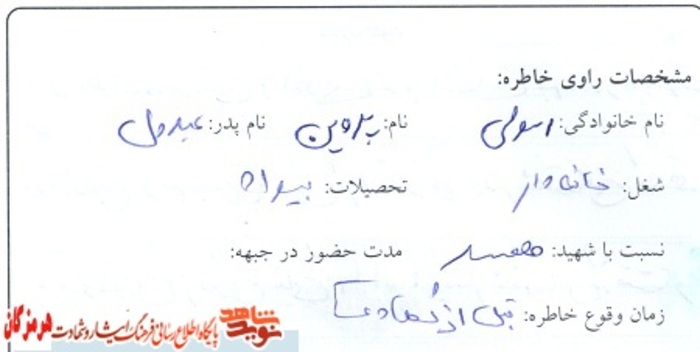 مشخصات راوی خاطره:
نام خانوادگی: رسولی نام: پروین نام پدر:
شغل: خانه دار تحصیلات: بیسواد
نسبت با شهید: همسر مدت حضور در جبهه:
زمان وقوع خاطره: قبل از شهادت
نوید شاهد پایگاه اطلاع رسانی فرهنگ ایثار و شهادت هرمزگان